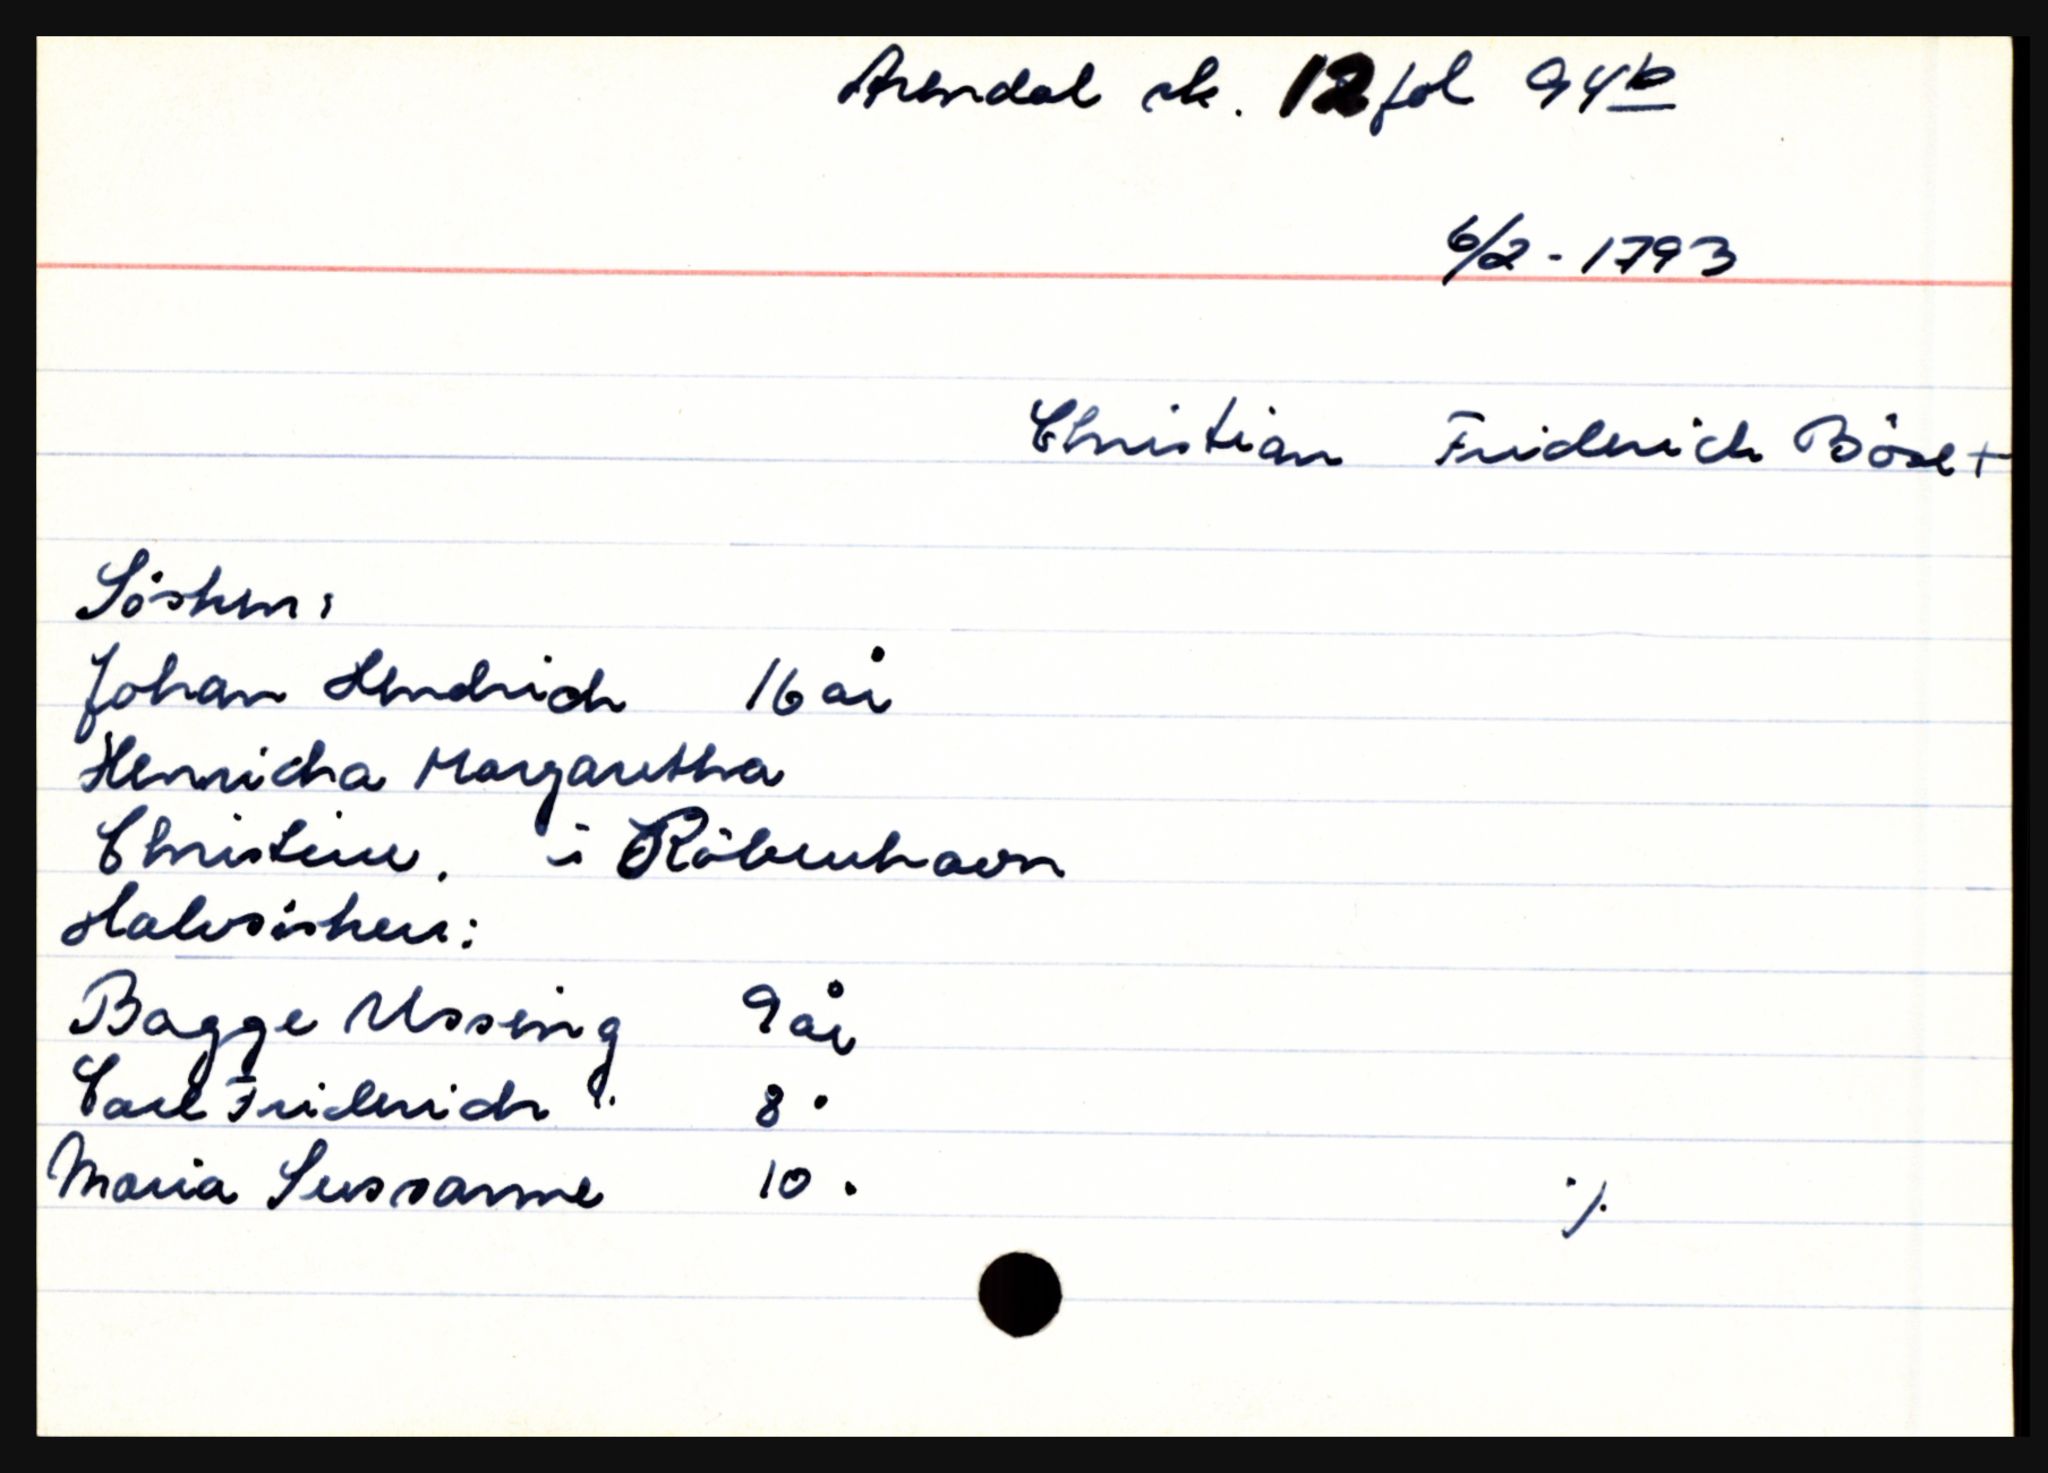 Arendal sk. 12 fol 94b
6/2 - 1793
Christian Friderich Böse +
Sösken:
Johan Hendrich 16 år
Henricha Margaretha
Christine. i Köbenhavn
Halvsösken:
Bagge Ussing 9 år
Carl Friderich " 8 "
Maria Sussanne 10 "
./.